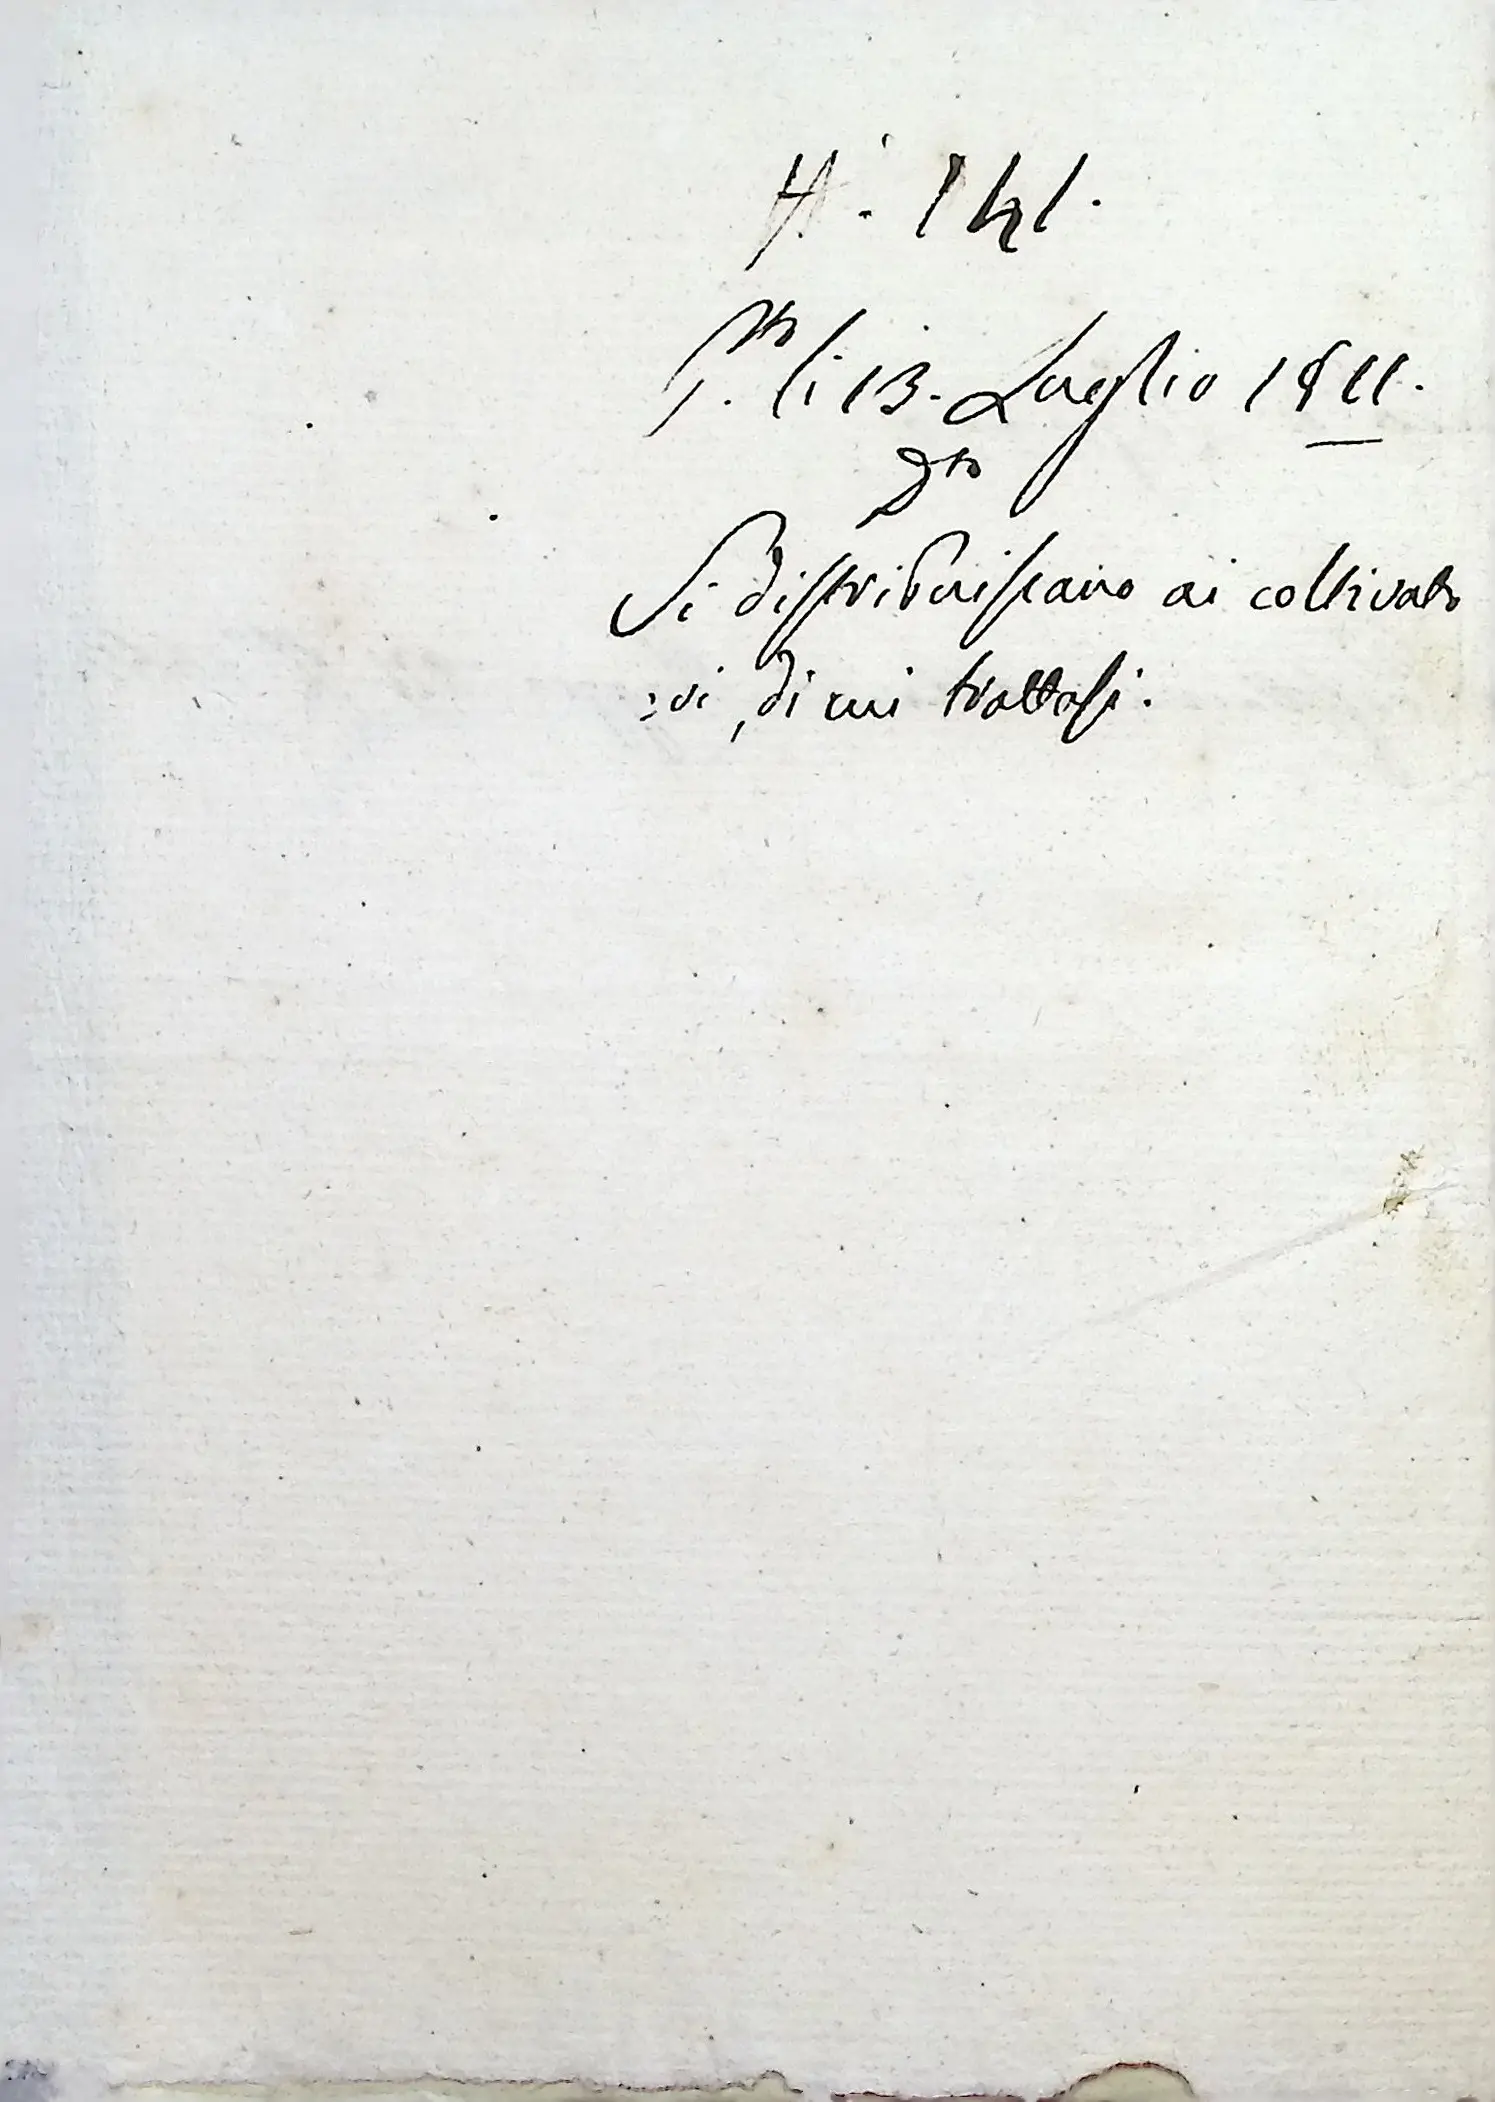 N.° 141.
P.to li 13. Luglio 1811.
Dto
Si distribuiscano ai coltivato
=ri, di cui trattasi.